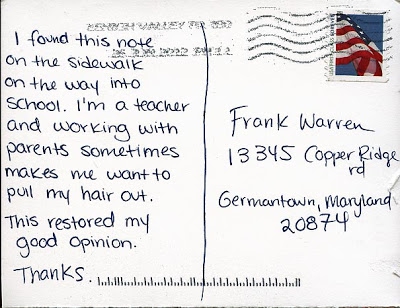 I found this note
on the sidewalk
on the way into
school. I'm a teacher
and working with
parents sometimes
makes me want to
pull my hair out.
This restored my
good opinion.
Thanks.
Frank Warren
13345 Copper Ridge
rd
Germantown, Maryland
20874